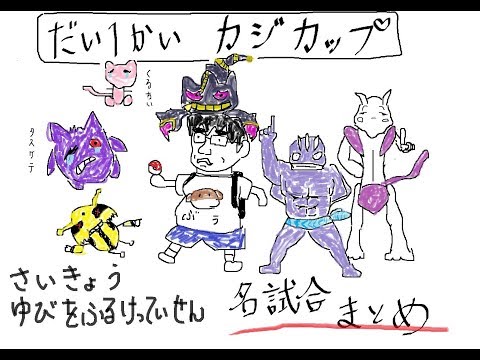 だい1かい カジカップ♡
くるちぃ
タスケテ
ぶぅ
さいきょう
ゆびをふるけっていせん
名試合まとめ